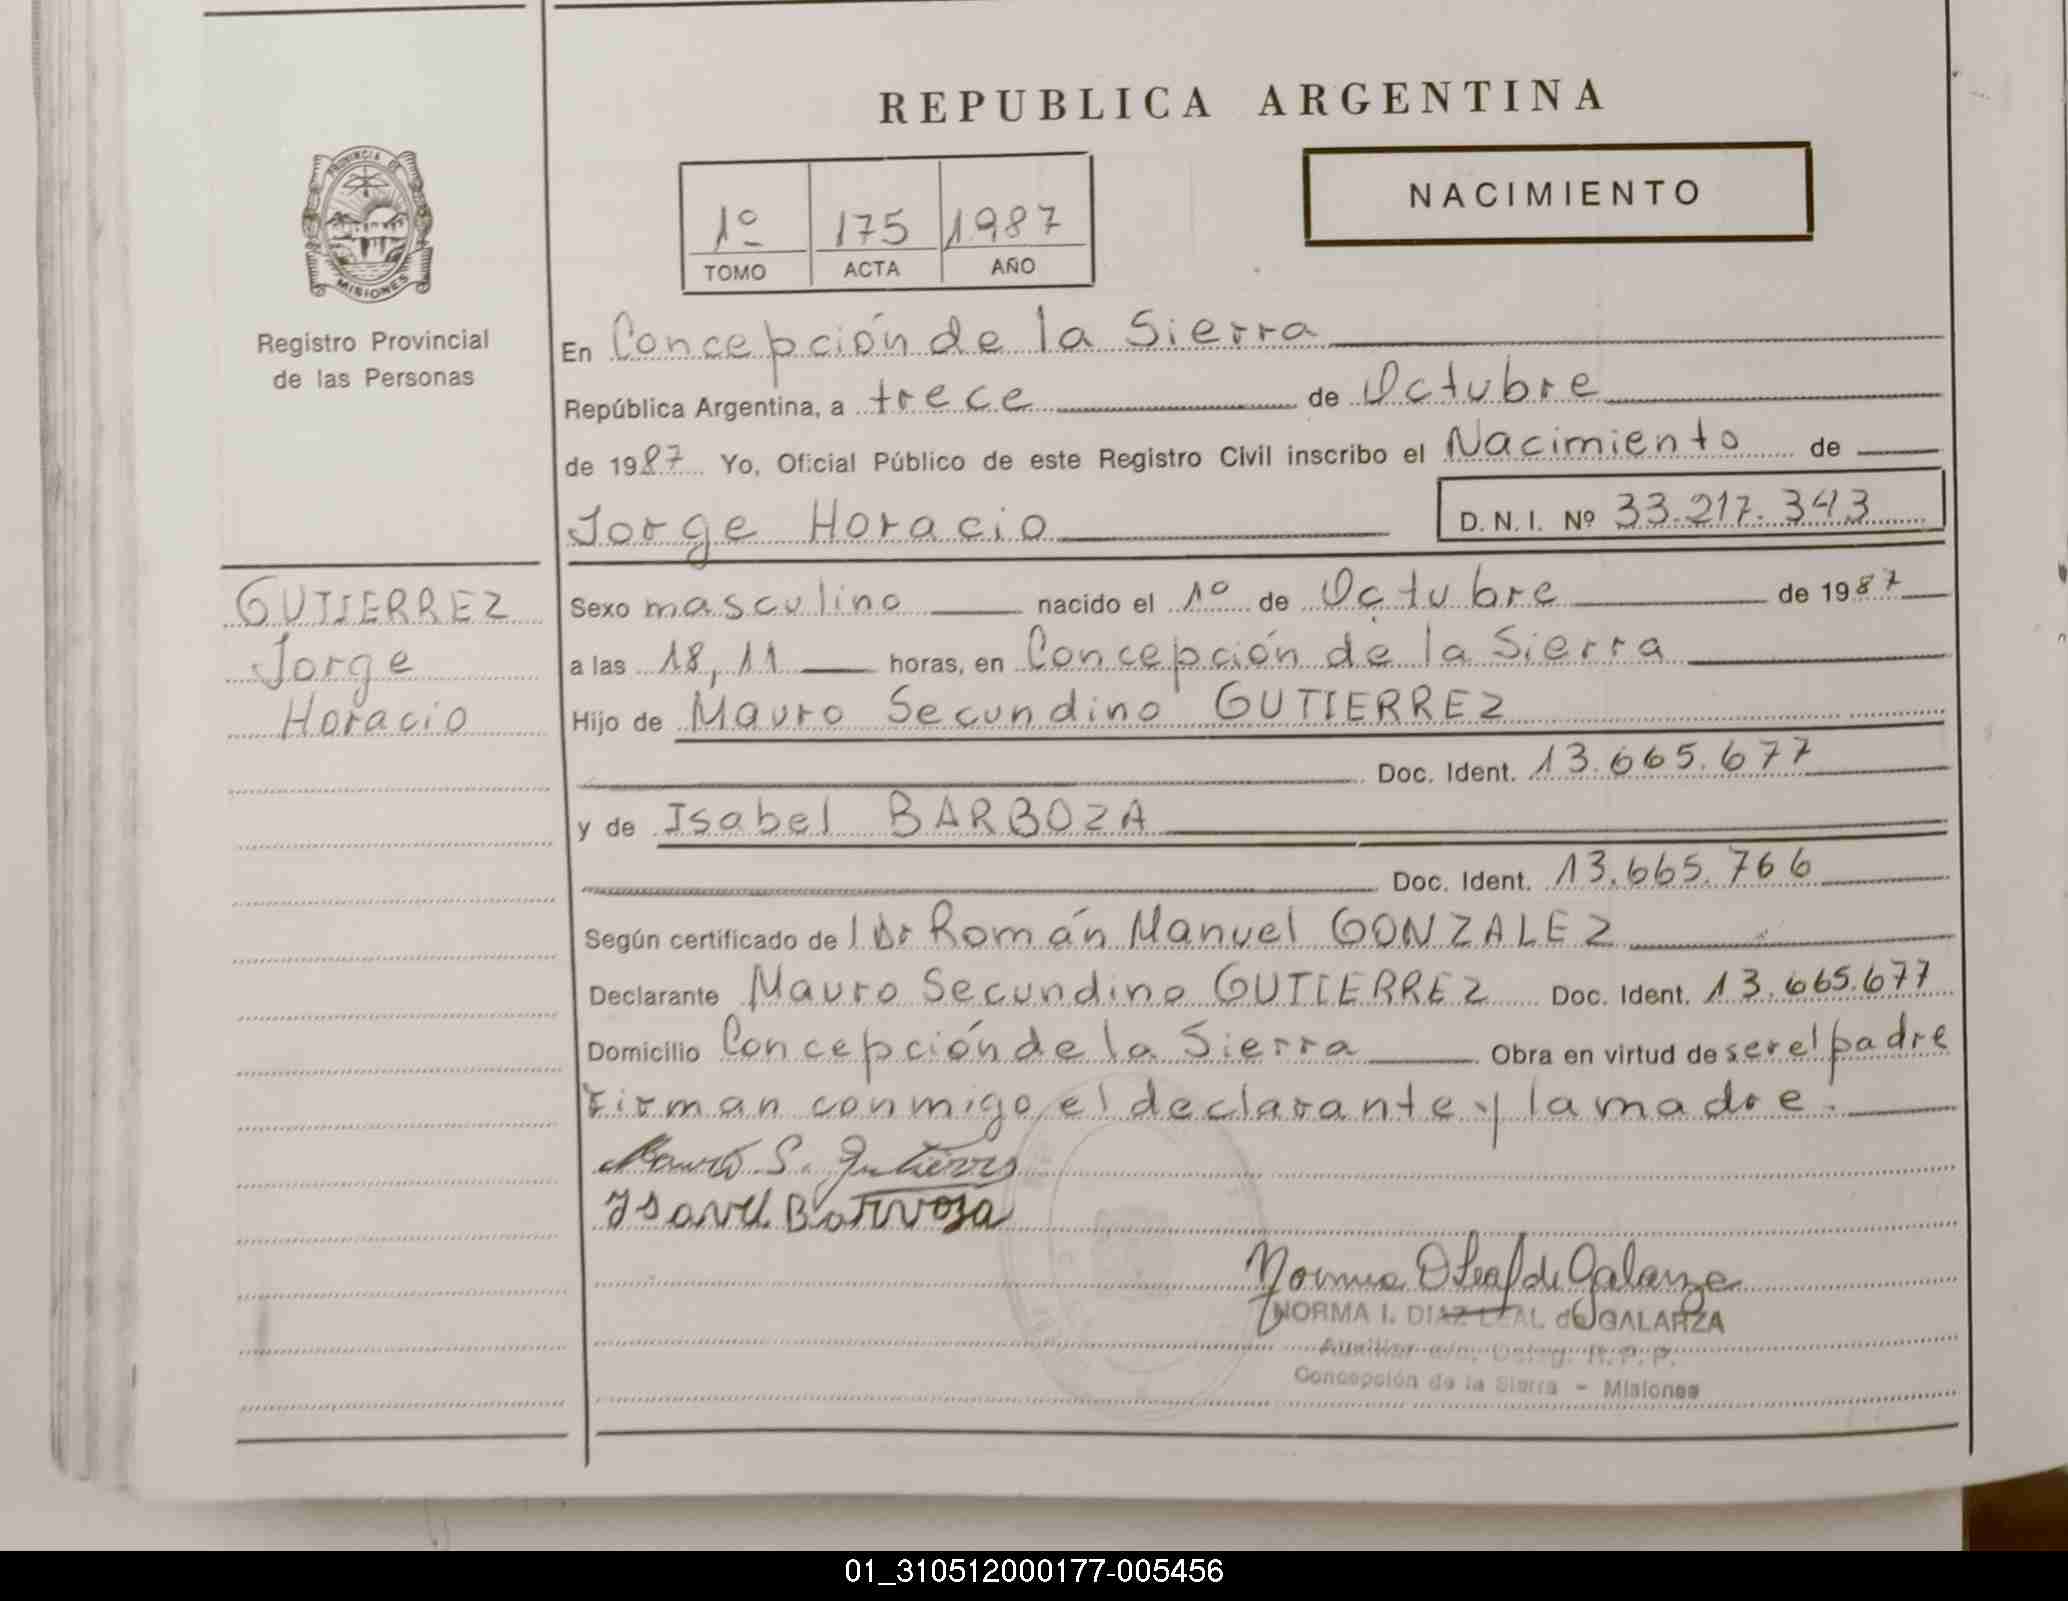 REPUBLICA ARGENTINA
NACIMIENTO
1º 175 1987
TOMO ACTA AÑO
PROVINCIA DE
MISIONES
Registro Provincial
de las Personas
GUTIERREZ
Jorge
Horacio
En Concepción de la Sierra
República Argentina, a trece de Octubre
de 1987 Yo, Oficial Público de este Registro Civil inscribo el Nacimiento de
Jorge Horacio D.N.I. Nº 33.217.343
Sexo masculino nacido el 1º de Octubre de 1987
a las 18,11 horas, en Concepción de la Sierra
Hijo de Mauro Secundino GUTIERREZ
Doc. Ident. 13.665.677
y de Isabel BARBOZA
Doc. Ident. 13.665.766
Según certificado de l Dr Román Manuel GONZALEZ
Declarante Mauro Secundino GUTIERREZ Doc. Ident. 13.665.677
Domicilio Concepción de la Sierra Obra en virtud de ser el padre
Firman conmigo el declarante y la madre.
Mauro S. Gutierres
Isavel Barvosa
Norma D Leal de Galarza
NORMA I. DIAZ LEAL de GALARZA
Auxiliar a/c. Deleg. R. P. P.
Concepción de la Sierra - Misiones
01_310512000177-005456